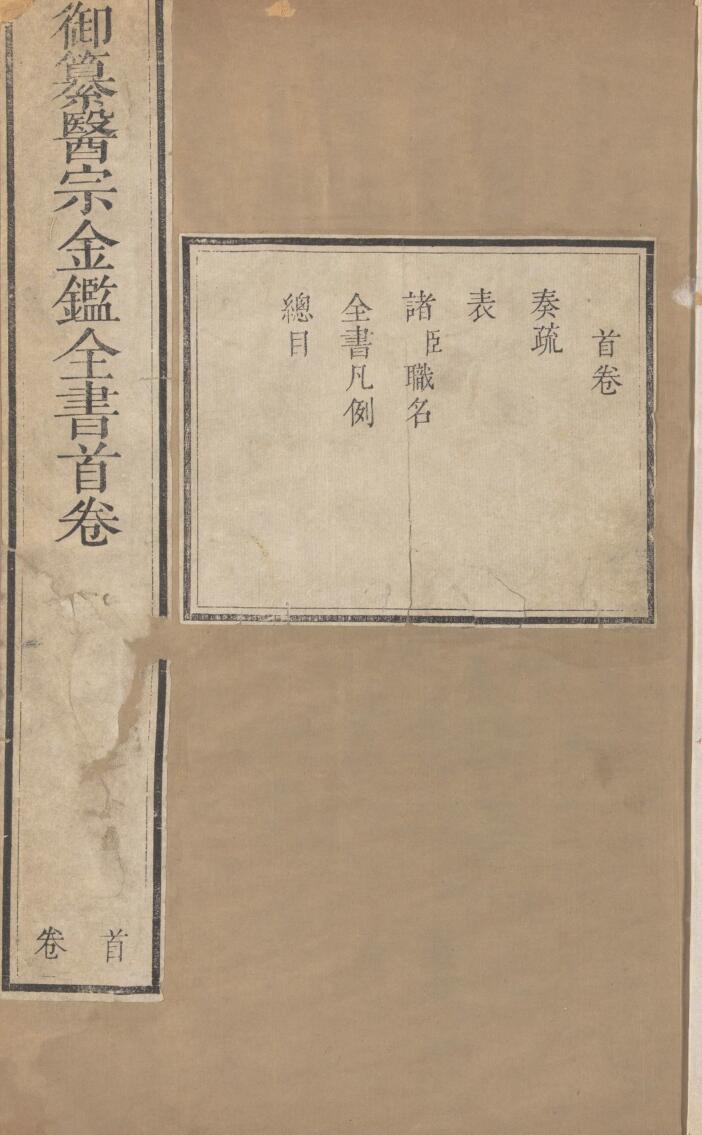 御纂醫宗金鑑全書首卷
首卷
首卷
奏疏
表
諸臣職名
全書凡例
總目